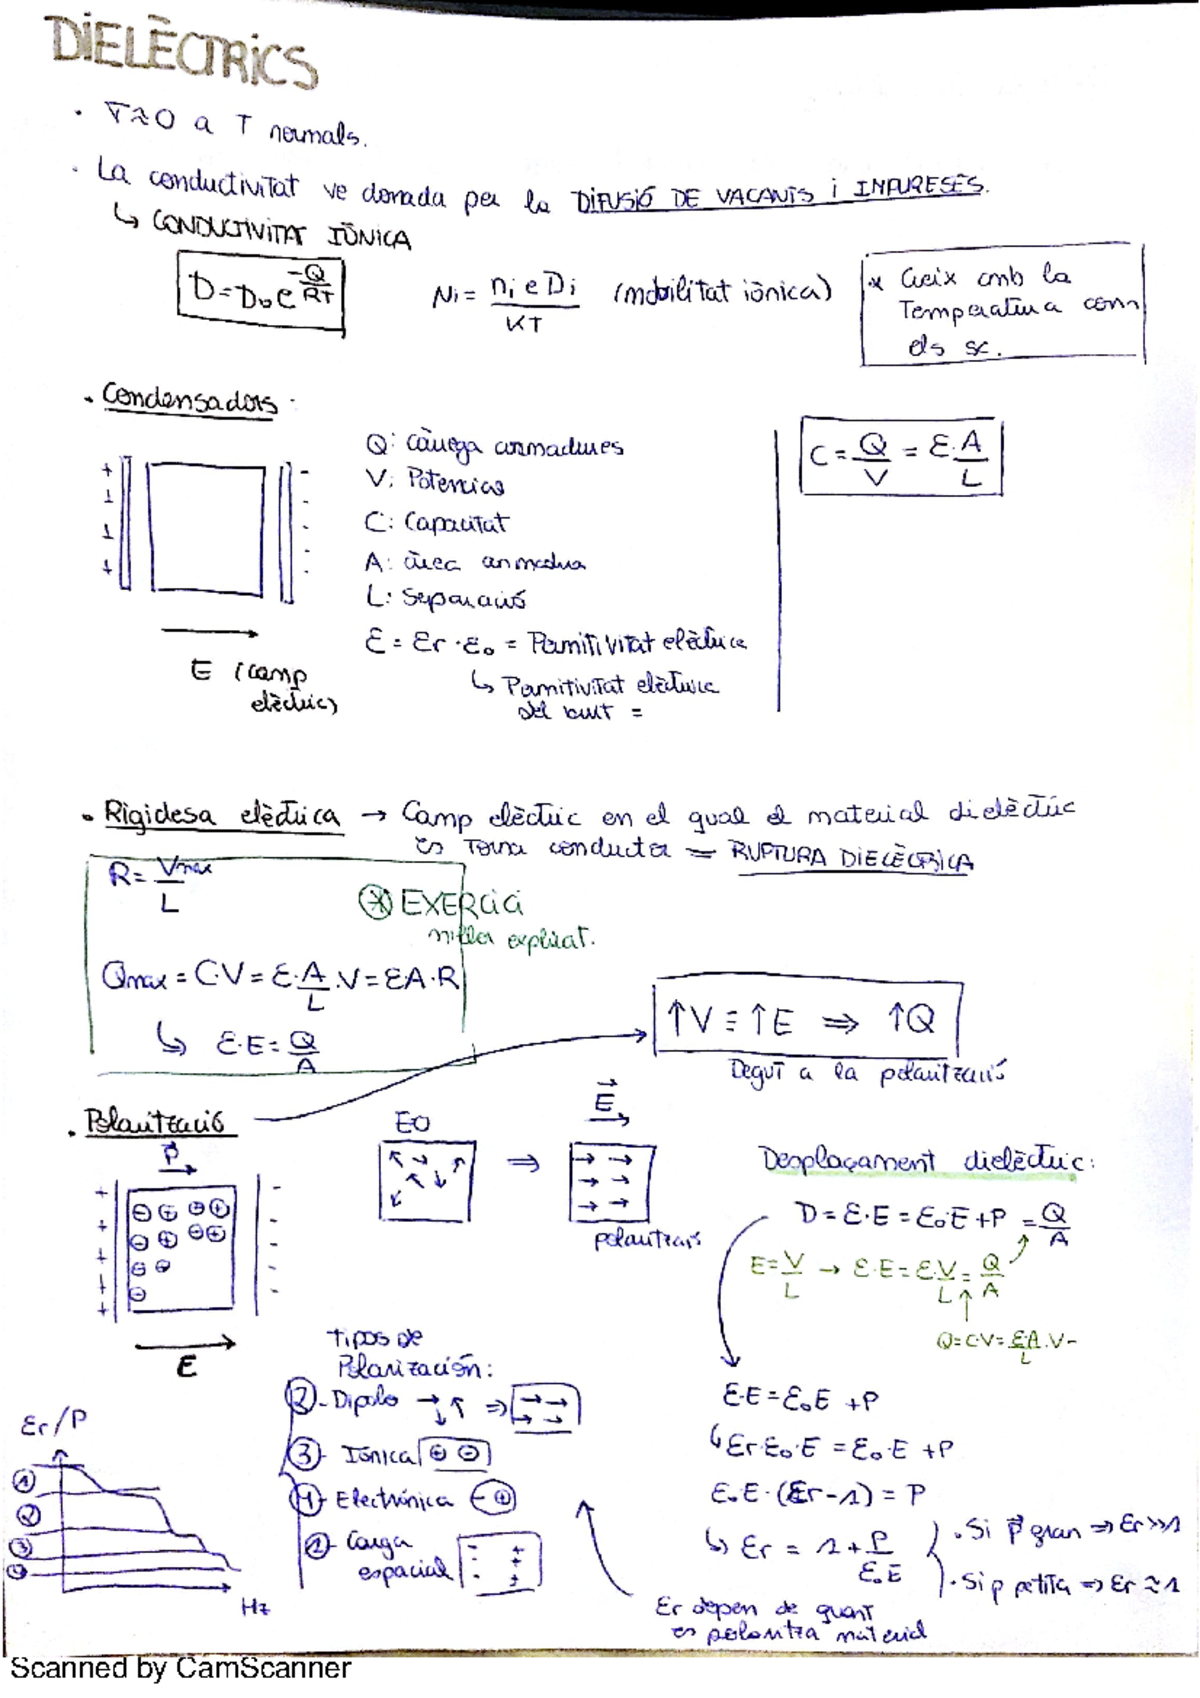 DIELÈCTRICS
· σ≈0 a T normals.
· La conductivitat ve donada per la DIFUSIÓ DE VACANTS i IMPURESES.
↳ CONDUCTIVITAT IÒNICA
D=D₀e^(-Q/RT)
Ni = ni e Di / KT (mobilitat iònica)
* Creix amb la
Temperatura com
els sc.
· Condensadors:
Q: càrrega armadures
V: Potencias
C: Capacitat
A: àrea armadura
L: Separació
Ɛ = Ɛr · Ɛ₀ = Permitivitat elèctrica
↳ Permitivitat elèctrica
del buit =
C = Q/V = Ɛ·A/L
+ -
E (camp
elèctric)
· Rigidesa elèctrica → Camp elèctric en el qual el material dielèctric
es torna conductor = RUPTURA DIELÈCTRICA
R = Vmax/L
* EXERCICI
millor explicat.
Qmax = C·V = Ɛ·A/L·V = ƐA·R
↳ Ɛ·E = Q/A
↑V ≡ ↑E ⇒ ↑Q
Degut a la polarització
· Polarització
P
E
E0 ⇒ E
polaritzats
Desplaçament dielèctric:
D = Ɛ·E = Ɛ₀·E + P = Q/A
E = V/L → Ɛ·E = Ɛ·V/L = Q/A
Q=CV= Ɛ·A/L ·V
Tipos de
Polarización:
②- Dipolo → ⇒
③- Iónica ⊕ ⊖
④- Electrónica - ⊕
①- Carga
espacial
Ɛr/P
①
②
③
④
Hz
Ɛ·E = Ɛ₀E + P
↳ Ɛr·Ɛ₀·E = Ɛ₀·E + P
Ɛ₀·E·(Ɛr-1) = P
↳ Ɛr = 1 + P/Ɛ₀E
· Si P gran ⇒ Ɛr >>1
· Si p petita ⇒ Ɛr ≈ 1
Ɛr depen de quant
es polaritza material
Scanned by CamScanner